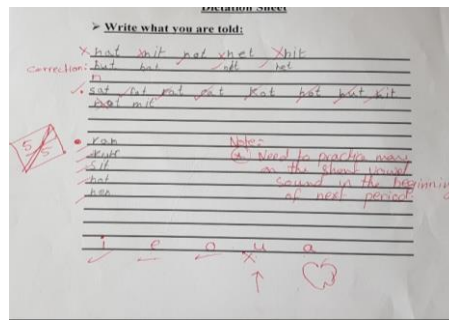 Dictation Sheet
➤ Write what you are told:
hat hit not net hit
Correction: but bat oft het
n
sat rat eat Kat hot but kit
not mit
5/5
ran
Note:
Need to practice many
sit on the short vowel
hat sound in the beginning
hen of next period
i e o u a